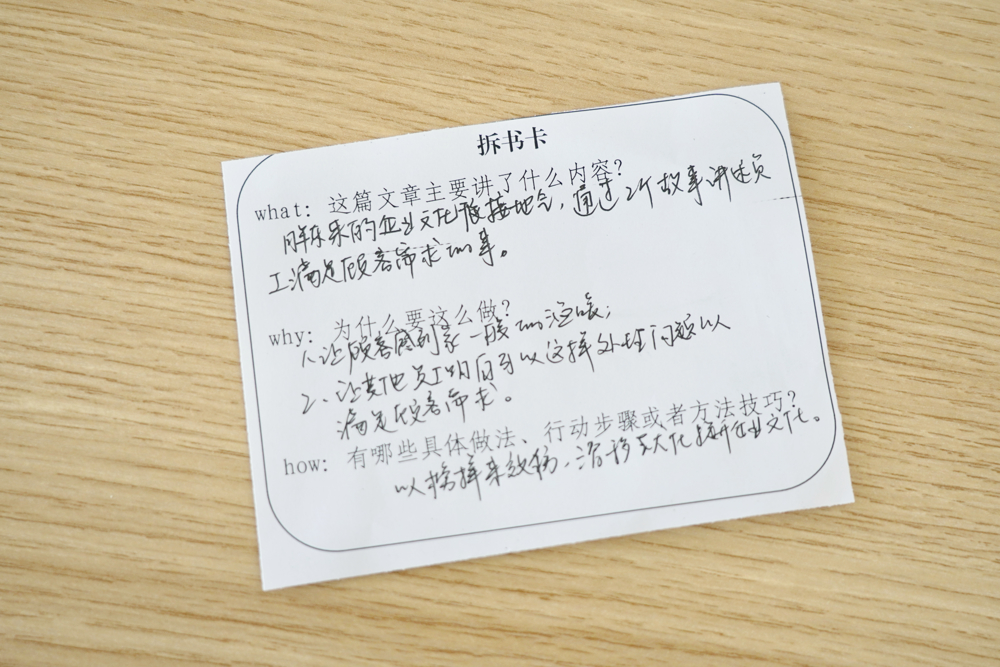 拆书卡
what: 这篇文章主要讲了什么内容?
胖东来的企业文化很接地气,通过2个故事讲述员
工满足顾客需求的事。
why: 为什么要这么做?
1、让顾客感到家一般的温暖;
2、让其他员工明白可以这样处理问题以
满足顾客需求。
how: 有哪些具体做法、行动步骤或者方法技巧?
以榜样来,企业文化。